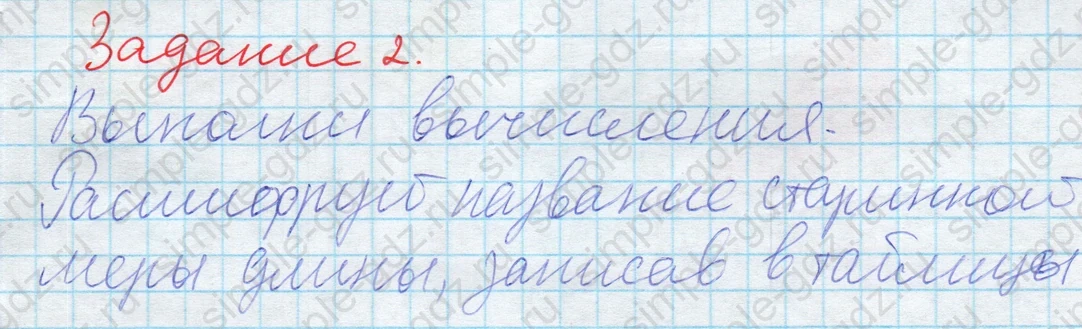 Задание 2.
Выполни вычисления.
Расшифруй название старинной
меры длины, записав в таблицы